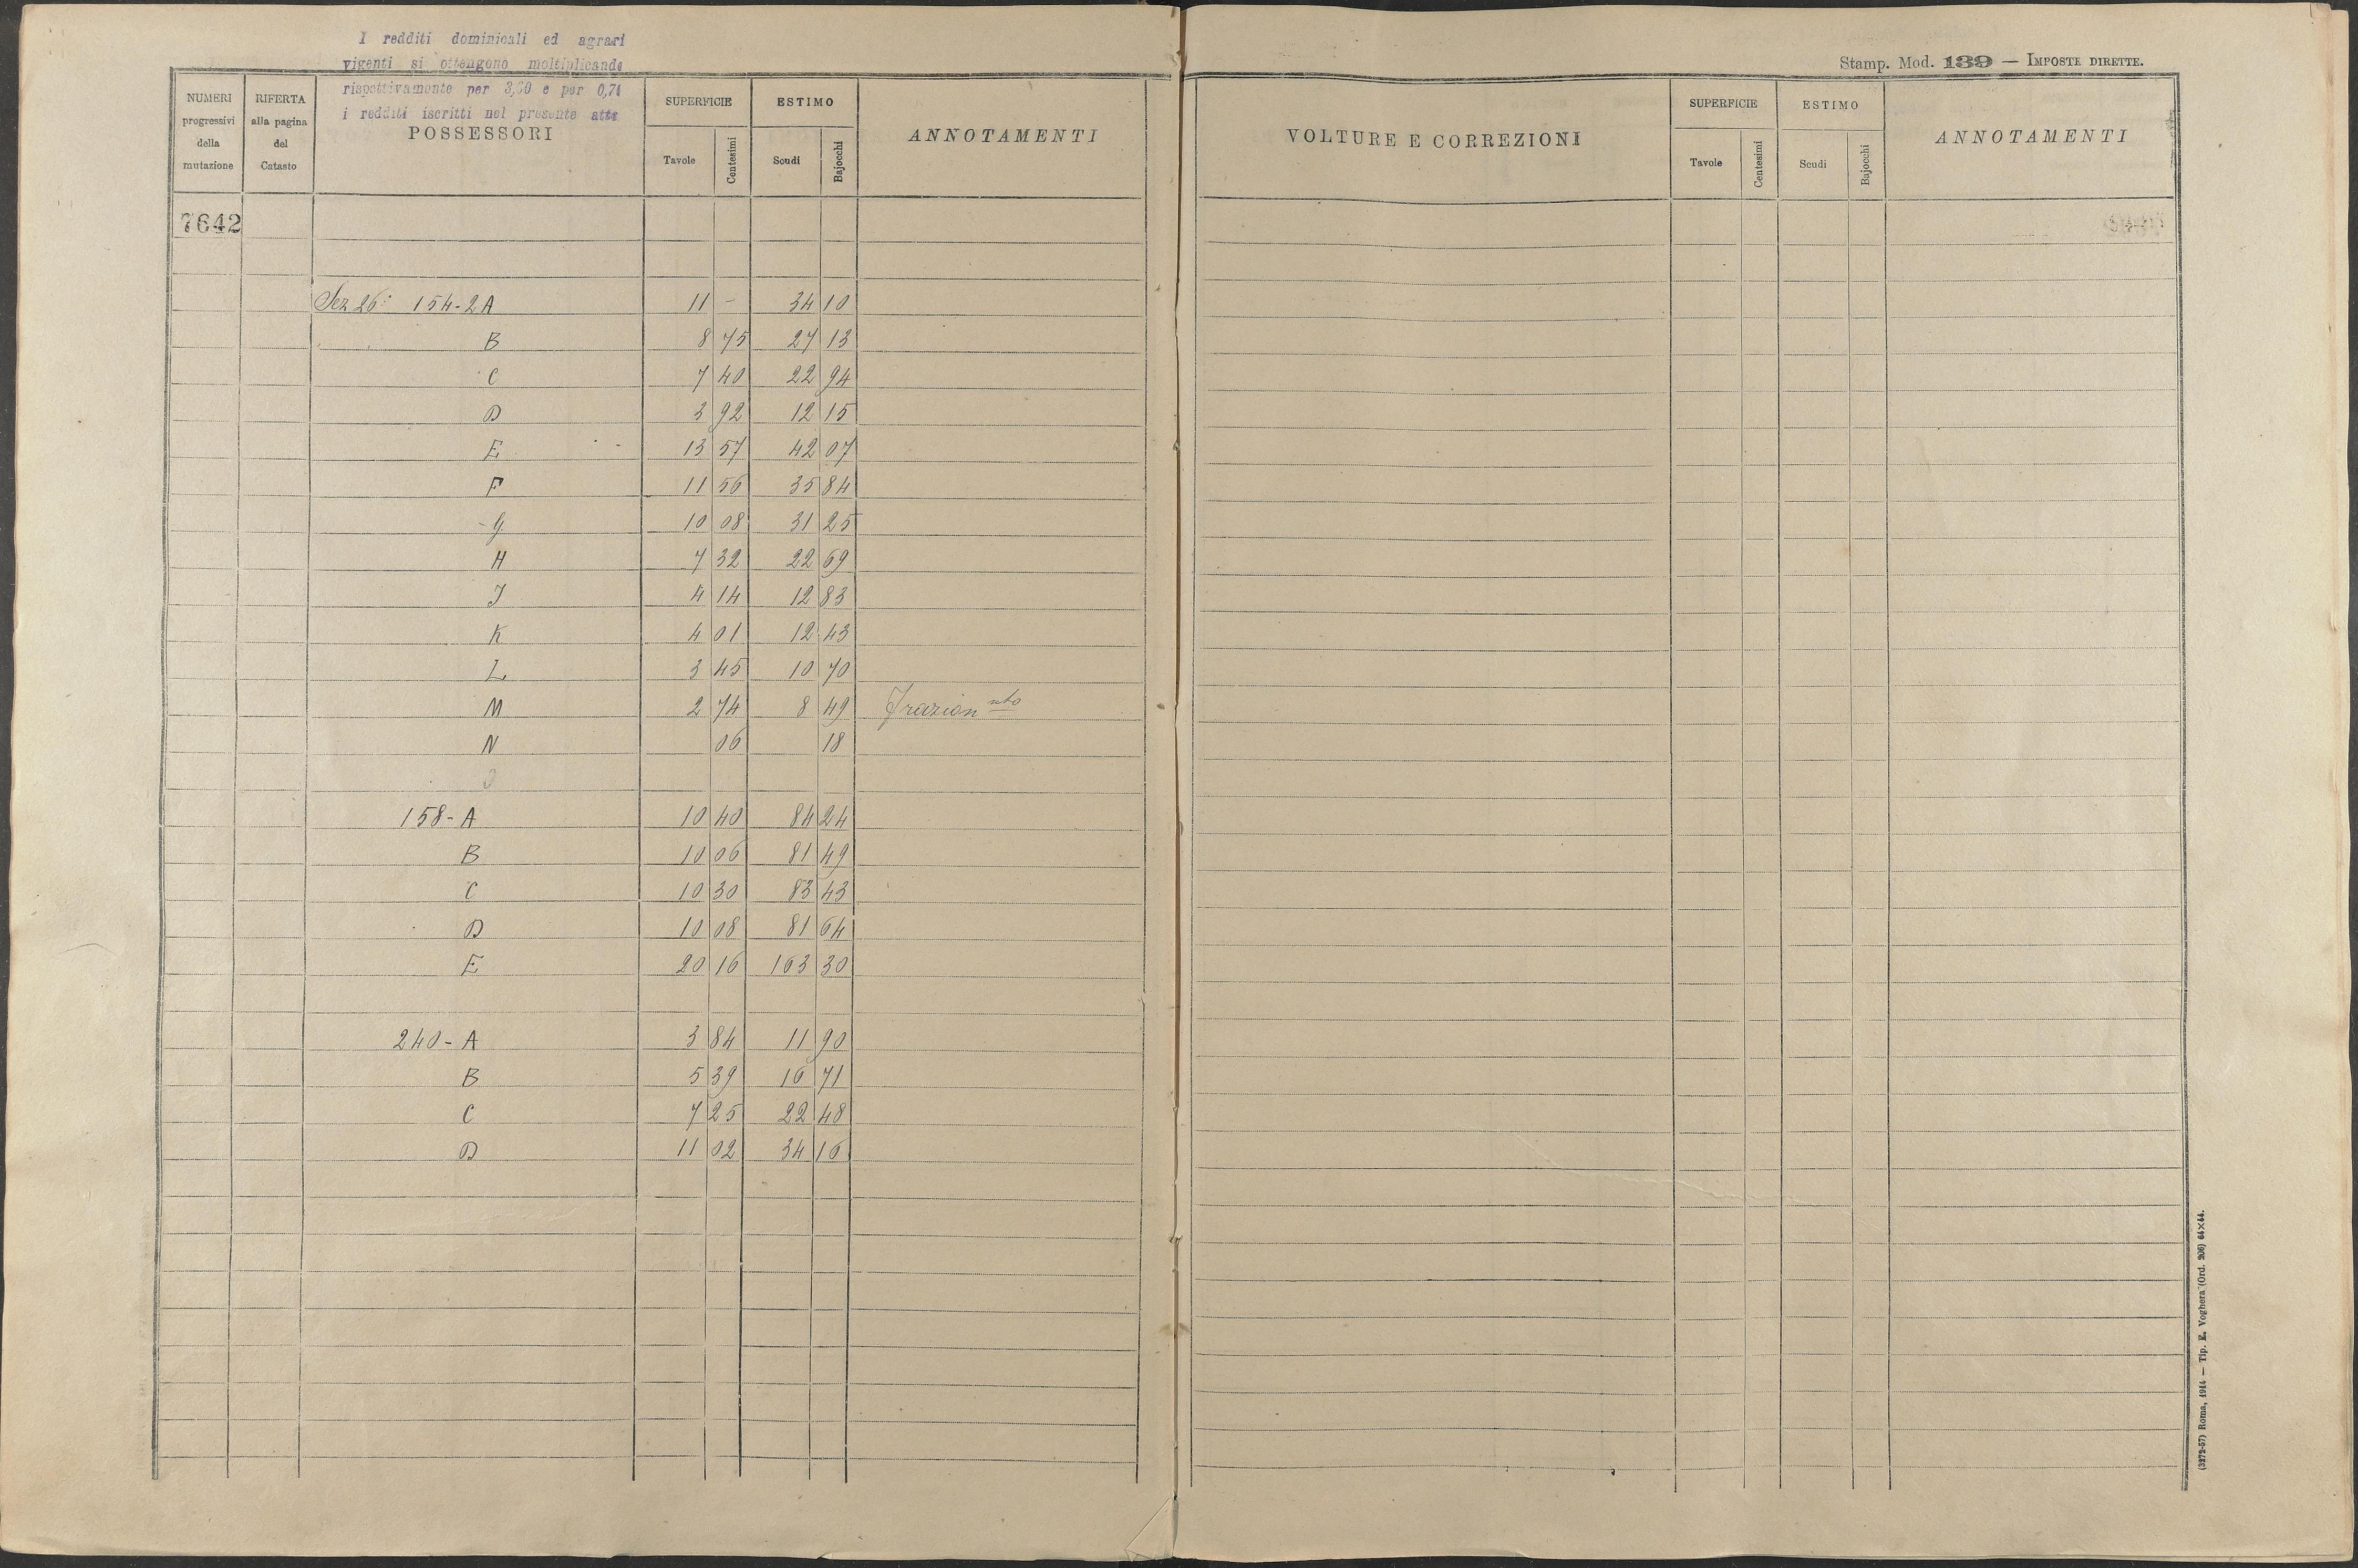 I redditi dominicali ed agrari
vigenti si ottengono moltiplicando
rispettivamente per 3,50 e per 0,71
i redditi iscritti nel presente atto
NUMERI progressivi della mutazione
RIFERTA alla pagina del Catasto
POSSESSORI
SUPERFICIE
Tavole Centesimi
ESTIMO
Scudi Bajocchi
ANNOTAMENTI
7642
Sez 26: 154-2A 11 - 34 10
B 8 75 27 13
C 7 40 22 94
D 3 92 12 15
E 13 57 42 07
F 11 56 35 84
G 10 08 31 25
H 7 32 22 69
J 4 14 12 83
K 4 01 12 43
L 3 45 10 70
M 2 74 8 49 Frazionnto
N 06 18
158-A 10 40 84 24
B 10 06 81 49
C 10 30 83 43
D 10 08 81 64
E 20 16 163 30
240-A 3 84 11 90
B 5 39 16 71
C 7 25 22 48
D 11 02 34 16
Stamp. Mod. 139 — IMPOSTE DIRETTE.
VOLTURE E CORREZIONI
SUPERFICIE
Tavole Centesimi
ESTIMO
Scudi Bajocchi
ANNOTAMENTI
(3272-57) Roma, 1914 — Tip. E. Voghera (Ord. 206) 64×44.